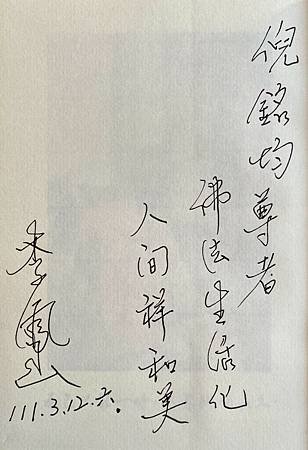 倪銘均尊者
佛法生活化
人间祥和美
李鳳山
111.3.12.六.